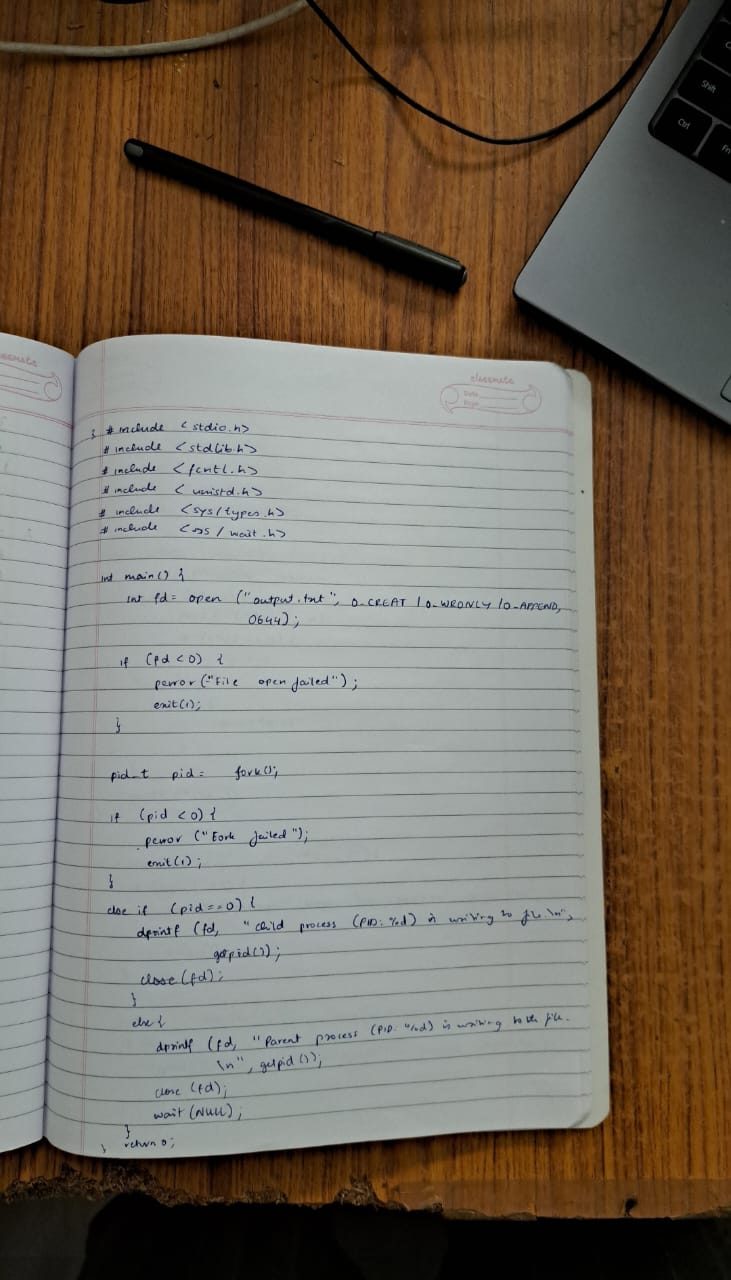 Ctrl
Shift
Fn
classmate
Date
Page
# include <stdio.h>
# include <stdlib.h>
# include <fcntl.h>
# include <unistd.h>
# include <sys/types.h>
# include <sys/wait.h>
int main() {
int fd = open ("output.txt", O_CREAT | O_WRONLY | O_APPEND,
0644);
if (fd < 0) {
perror ("File open failed");
exit(1);
}
pid_t pid = fork();
if (pid < 0) {
perror ("Fork failed");
exit(1);
}
else if (pid == 0) {
dprintf (fd, "Child process (PID: %d) is writing to file.\n",
getpid());
close (fd);
}
else {
dprintf (fd, "Parent process (PID: %d) is writing to the file.
\n", getpid());
close (fd);
wait (NULL);
}
return 0;
}